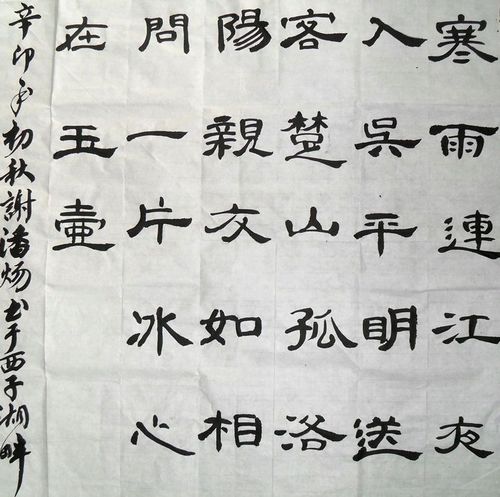 寒雨連江夜
入吳平明送
客楚山孤洛
陽親友如相
問一片冰心
在玉壺
辛卯年初秋謝潘煬书于西子湖畔